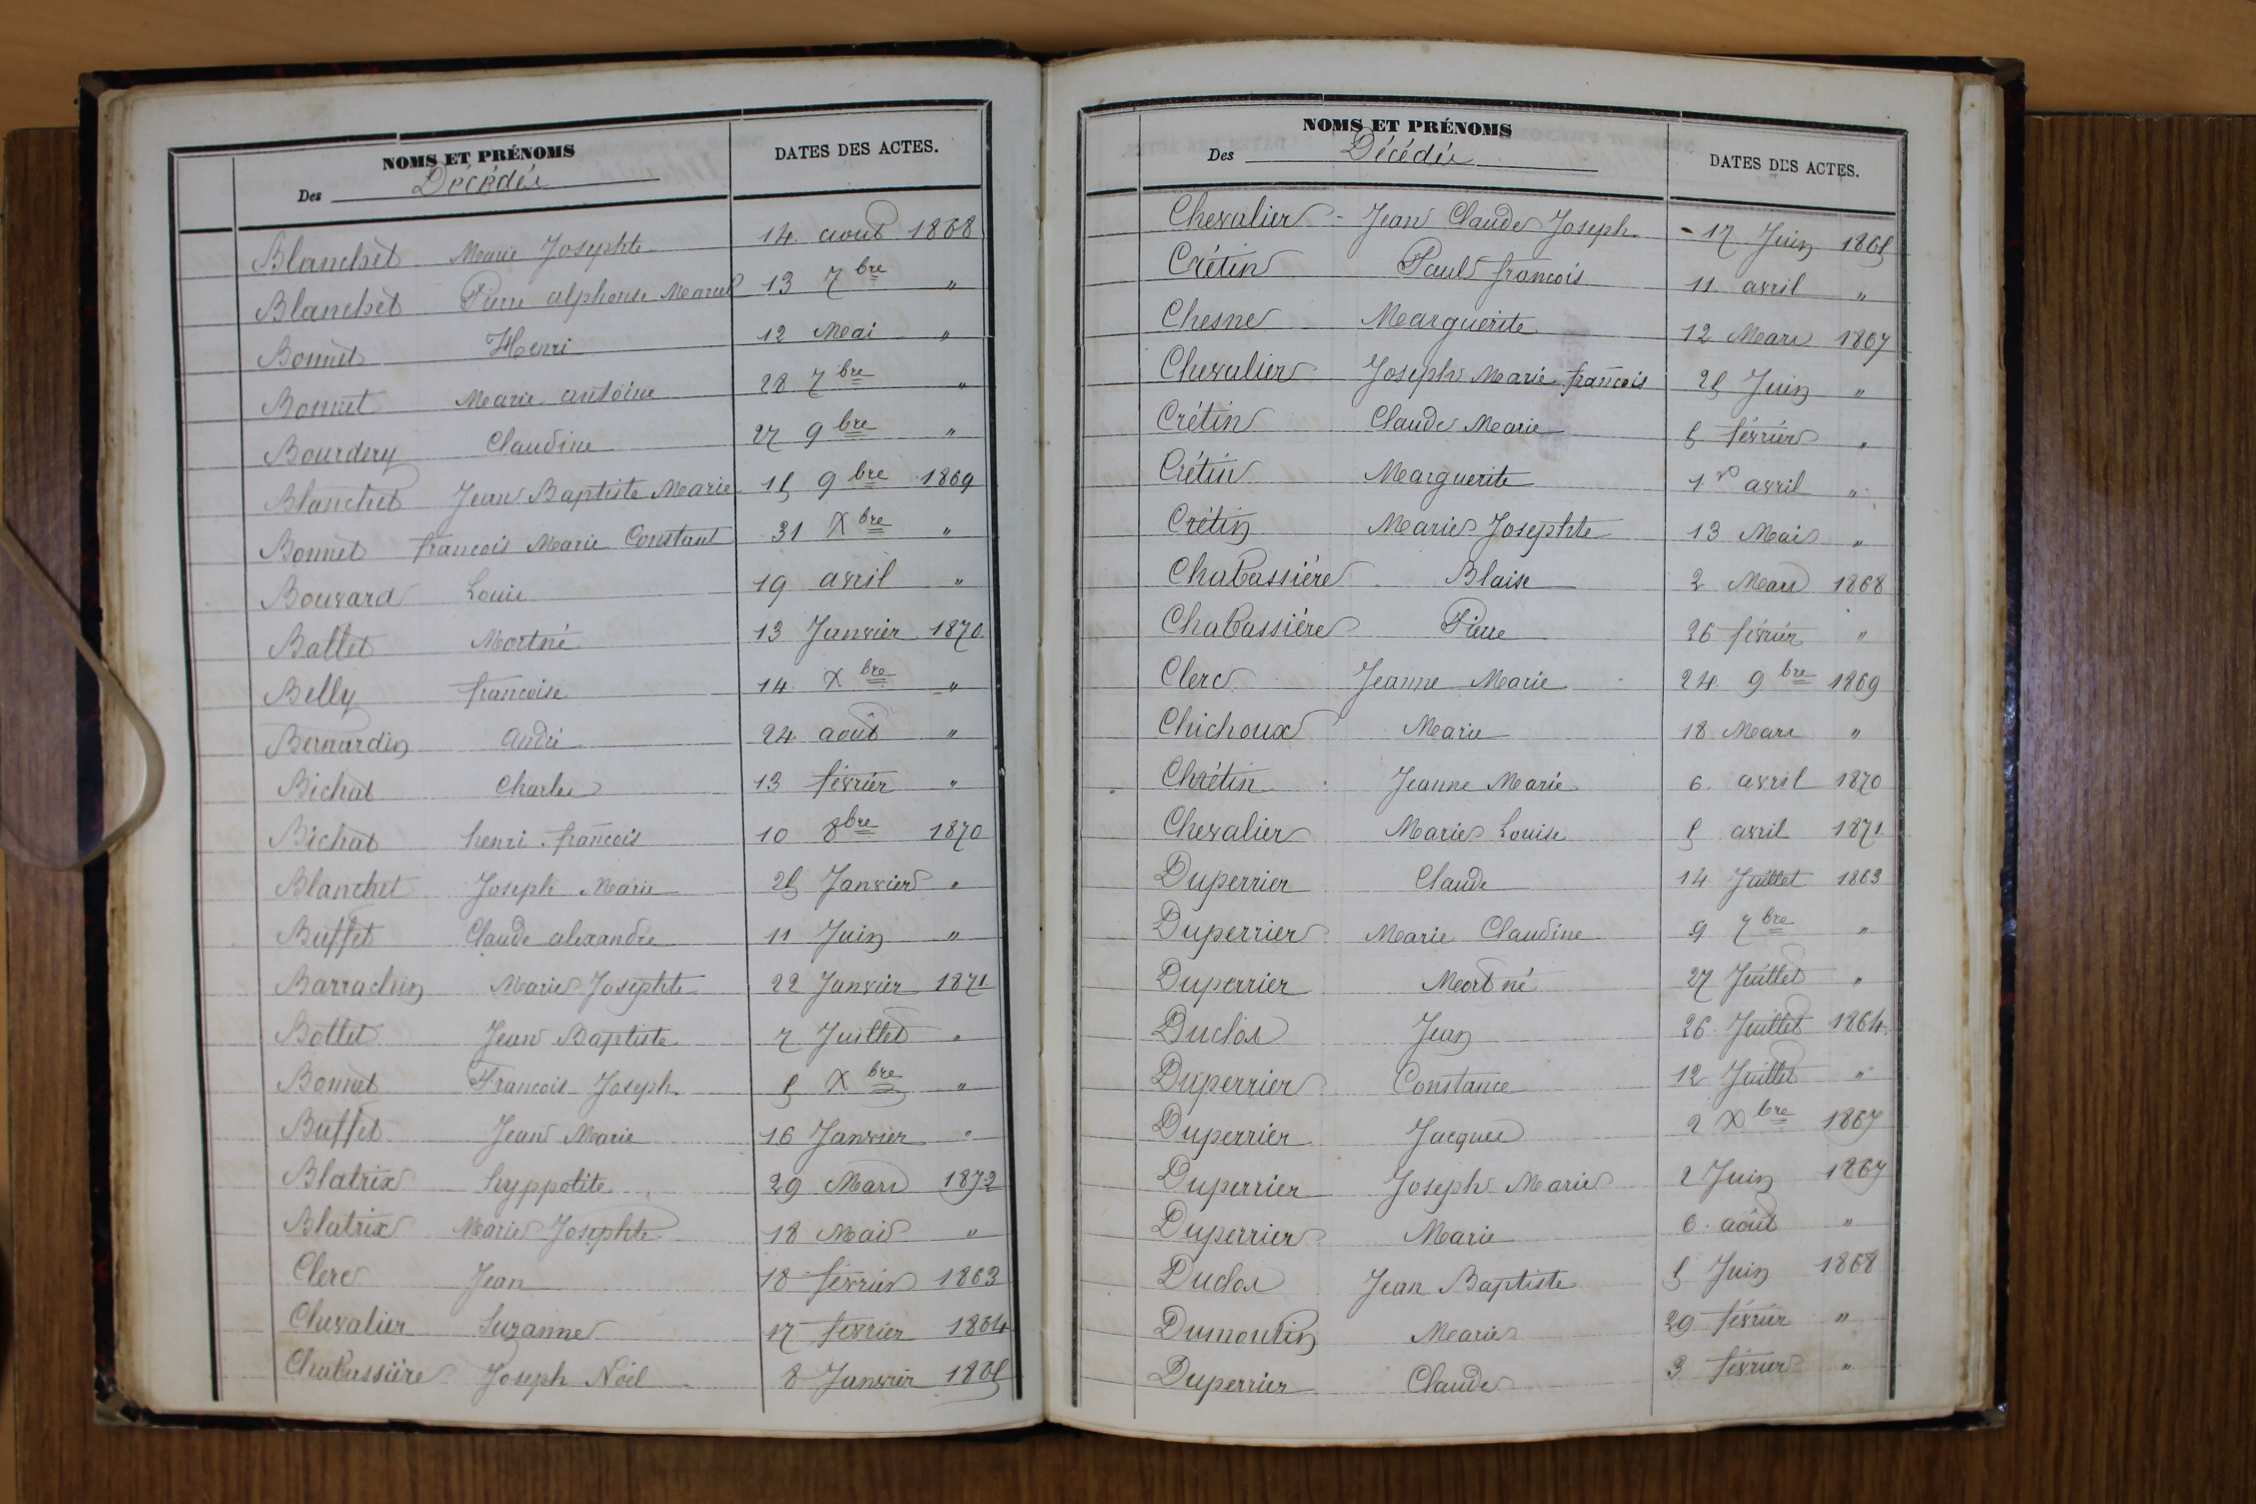 NOMS ET PRÉNOMS
Des Décédés
DATES DES ACTES.
Blanchet Marie Josephte 14 aout 1868
Blanchet Pierre alphonse Marcel 13 7bre "
Bonnet Henri 12 Mai "
Bonnet Marie antoine 28 7bre "
Bourdery Claudine 27 9bre "
Blanchet Jean Baptiste Marie 15 9bre 1869
Bonnet francois Marie Constant 31 Xbre "
Bouvard Louis 19 avril "
Ballet Mort né 13 Janvier 1870
Belly francoise 14 Xbre "
Bernardin andré 24 août "
Bichat Charles 13 février "
Bichat henri francois 10 8bre 1870
Blanchet Joseph Marie 25 Janvier "
Buffet Claude alexandre 11 Juin "
Barrachin Marie Josephte 22 Janvier 1871
Bottet Jean Baptiste 7 Juillet "
Bonnet Francois Joseph 5 Xbre "
Buffet Jean Marie 16 Janvier "
Blatrix hyppolite 29 Mars 1872
Blatrix Marie Josephte 18 Mai "
Clerc Jean 18 février 1863
Chevalier Suzanne 17 fevrier 1864
Chabassière Joseph Noël 8 Janvier 1865
NOMS ET PRÉNOMS
Des Décédés
DATES DES ACTES.
Chevalier - Jean Claude Joseph - 17 Juin 1865
Crétin Paul francois 11 avril "
Chesne Marguerite 12 Mars 1867
Chevalier Joseph Marie francois 25 Juin "
Crétin Claude Marie 5 février "
Crétin Marguerite 1er avril "
Crétin Marie Josephte 13 Mai "
Chabassière Blaise 2 Mars 1868
Chabassière Pierre 26 février "
Clerc Jeanne Marie 24 9bre 1869
Chichoux Marie 18 Mars "
Chrétin Jeanne Marie 6 avril 1870
Chevalier Marie Louise 5 avril 1871
Duperrier Claude 14 Juillet 1863
Duperrier Marie Claudine 9 7bre "
Duperrier Mort né 27 Juillet "
Duclos Jean 26 Juillet 1864
Duperrier Constance 12 Juillet "
Duperrier Jacques 2 Xbre 1867
Duperrier Joseph Marie 2 Juin 1867
Duperrier Marie 6 août "
Duclos Jean Baptiste 5 Juin 1868
Dumoulin Marie 29 février "
Duperrier Claude 3 février "